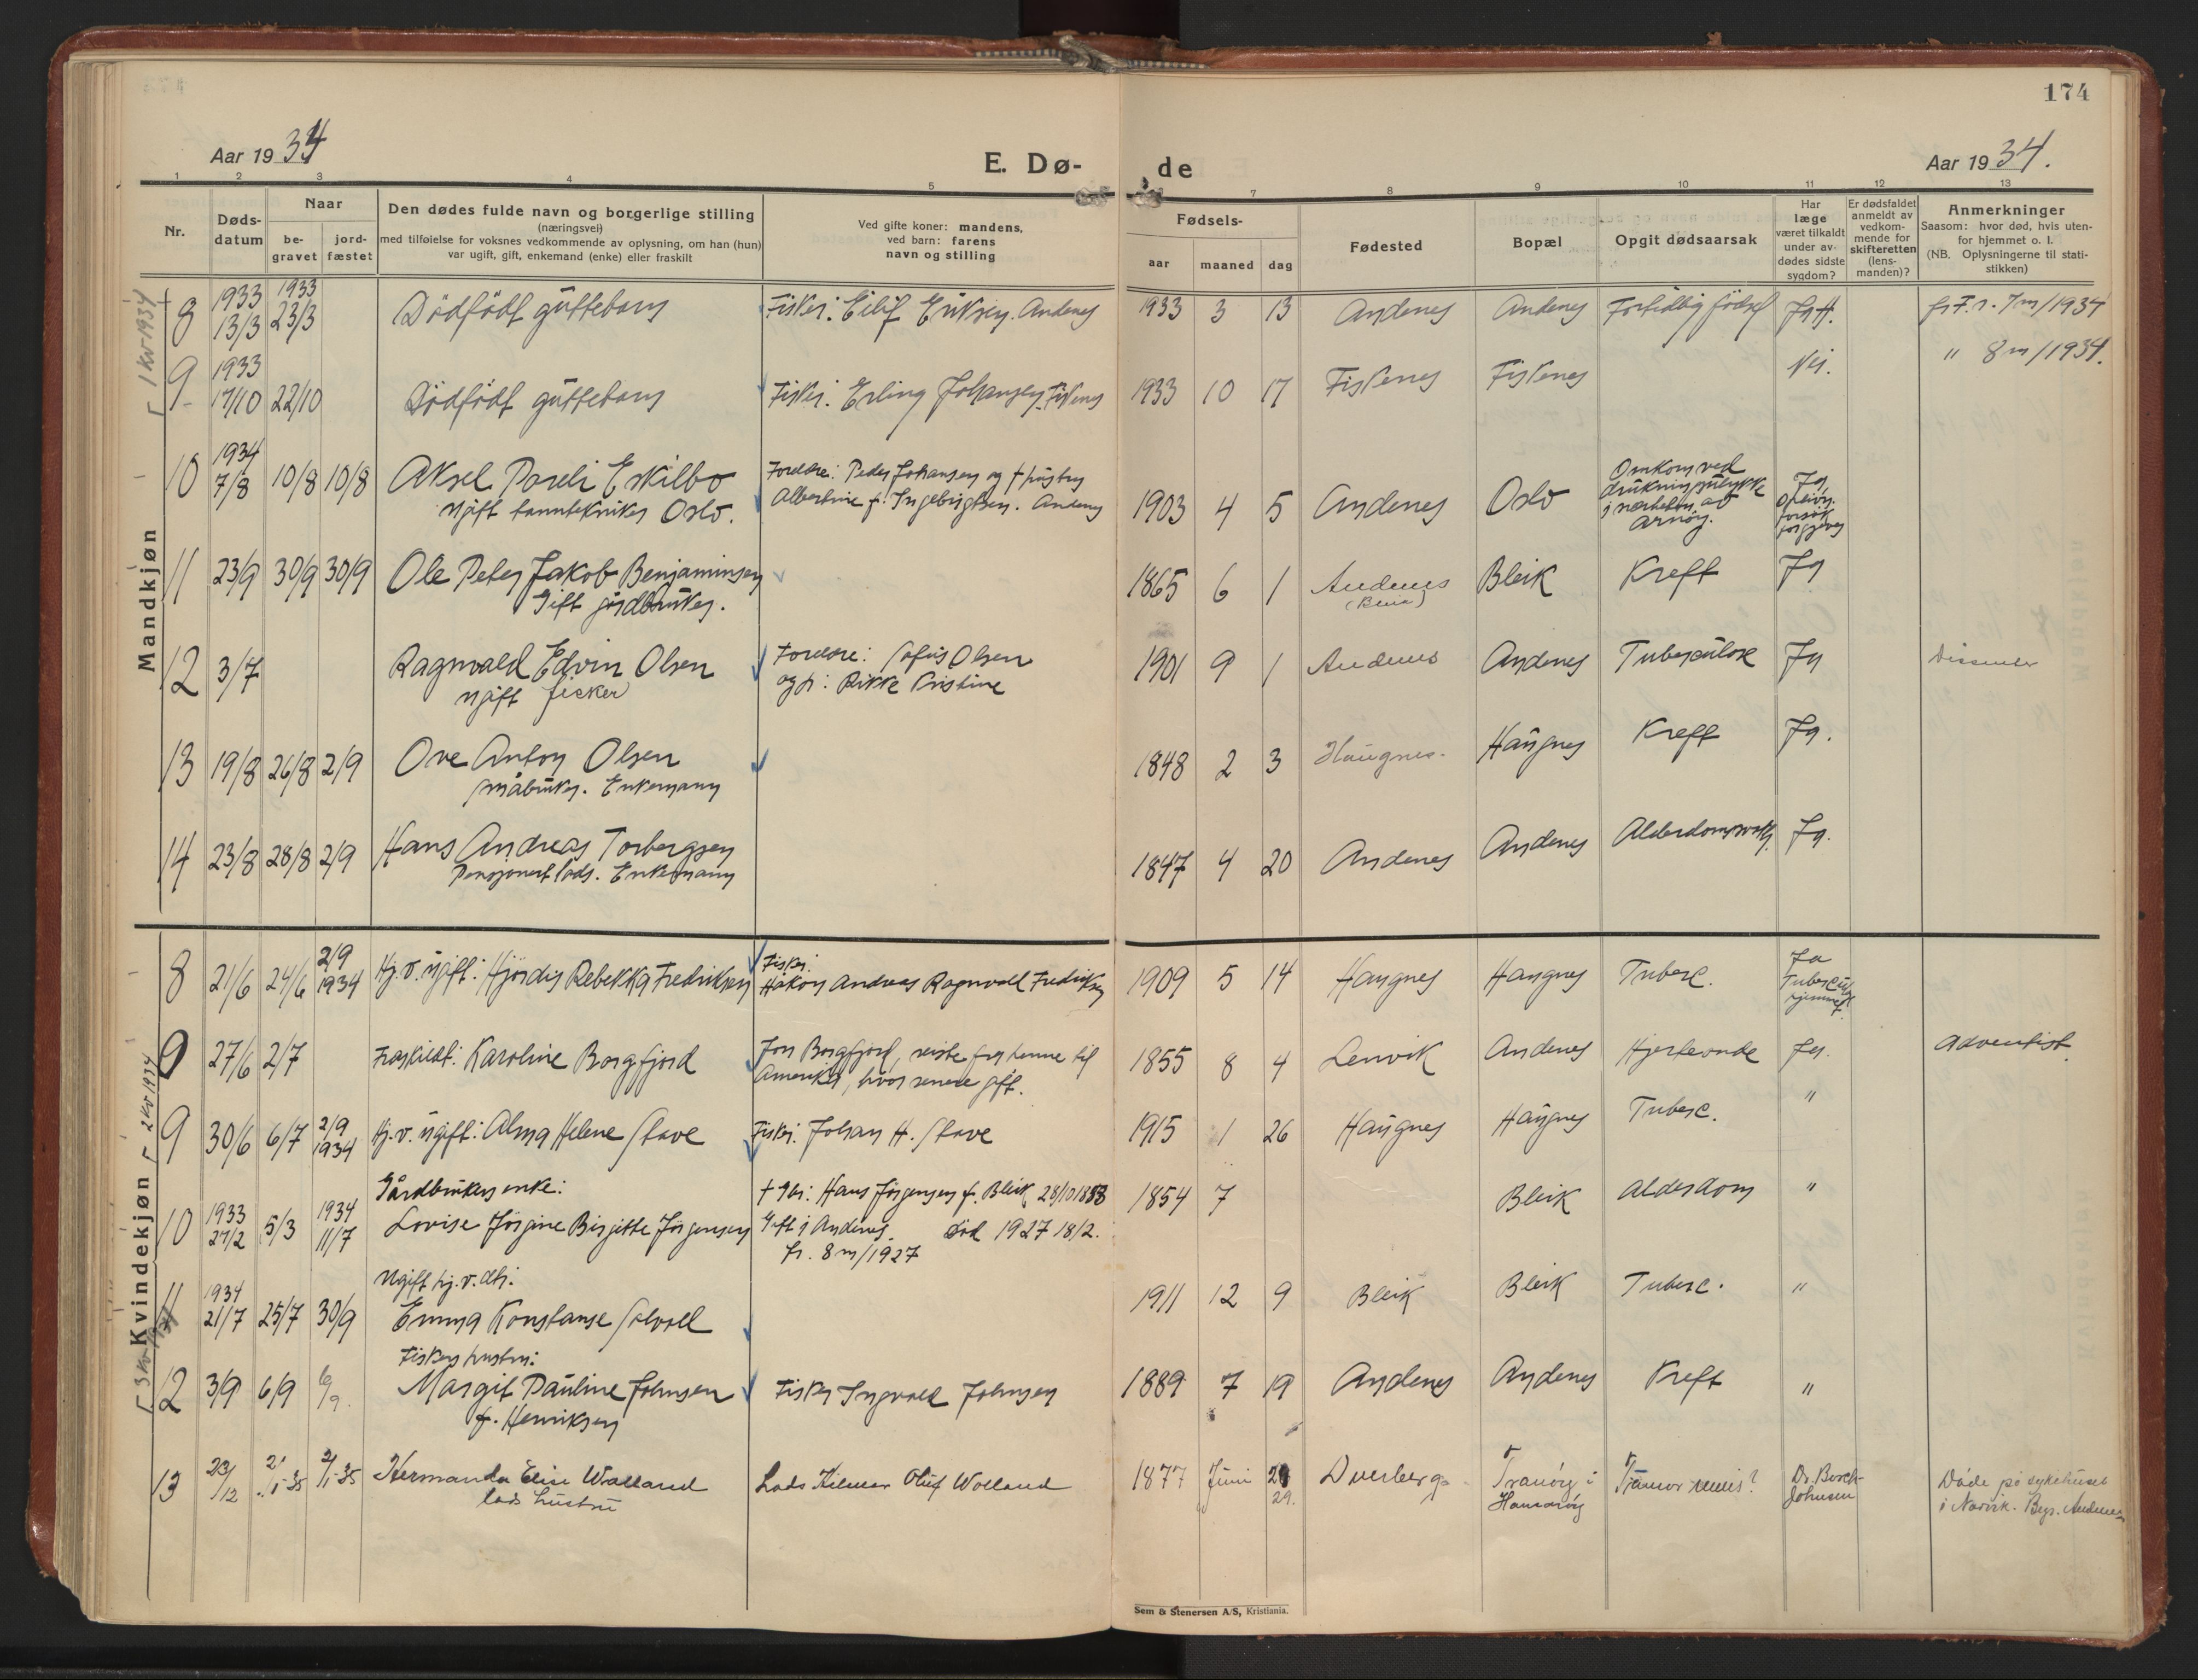 174
Aar 1934
E. Dø-
de
Aar 1934.
1 2 3 4 5 7 8 9 10 11 12 13
Nr.
Døds-
datum
Naar
be-
gravet
jord-
fæstet
Den dødes fulde navn og borgerlige stilling
(næringsvei)
med tilføielse for voksnes vedkommende av oplysning, om han (hun)
var ugift, gift, enkemand (enke) eller fraskilt
Ved gifte koner: mandens,
ved barn: farens
navn og stilling
Fødsels-
aar
maaned
dag
Fødested
Bopæl
Opgit dødsaarsak
Har
læge
været tilkaldt
under av-
dødes sidste
sygdom?
Er dødsfaldet
anmeldt av
vedkom-
mende for
skifteretten
(lens-
manden)?
Anmerkninger
Saasom: hvor død, hvis uten-
for hjemmet o. l.
(NB. Oplysningerne til stati-
stikken)
Mandkjøn
1 kv 1934
8 1933 13/3 1933 23/3 Dödfödt guttebarn Fisker: Eilif Eriksen. Andenes 1933 3 13 Andenes Andenes Fortidlig födsel 7m/1934
9 1933 17/10 22/10 Dödfödt guttebarn Fisker: Erling Johansen, Fiskenes 1933 10 17 Fiskenes Fiskenes Nei. " 8m/1934.
10 1934 7/8 10/8 10/8 Aksel Pareli Eskilbo Foreldre: Peder Johansen og † hustru
ugift tanntekniker Oslo. Albertine f. Ingebrigtsen. Andenes 1903 4 5 Andenes Oslo Omkom ved
drukningsulykke
i nærheten av
Arnöy. Ja,
forsök
forgjeves
11 23/9 30/9 30/9 Ole Peder Jakob Benjaminsen 1865 6 1 Andenes Bleik Kreft Ja
Gift jordbruker.
12 3/7 Ragnvald Edvin Olsen Foreldre: Sofus Olsen
ugift fisker og h: Rikke Kristine 1901 9 1 Andenes Andenes Tuberkulose Ja Dissenter
13 19/8 26/8 2/9 Ove Anton Olsen 1848 2 3 Haugnes. Haugnes Kreft Ja.
småbruker. Enkemann
14 23/8 28/8 2/9 Hans Andreas Torbergsen 1847 4 20 Andenes Andenes Alderdomssvakh. Ja.
Pensjonert lods. Enkemann
Kvindekjøn
2 kv 1934
3 kv 1934
8 21/6 24/6 2/9 1934 Hj. v. ugift: Hjördis Rebekka Fredriksen Fisker:
Håkon Andreas Ragnvald Fredriksen 1909 5 14 Haugnes Haugnes Tuberc. Ja
9 27/6 2/7 Fraskildt: Karoline Borgfjord Jon Borgfjord, reiste fra henne til
Amerika, hvor senere gift. 1855 8 4 Lenvik Andenes Hjerteonde Ja. Adventist.
9 30/6 6/7 2/9 1934 Hj. v. ugift: Alma Helene Stave Fisker: Johan H. Stave 1915 1 26 Haugnes Haugnes Tuberc. "
10 1933 27/2 5/3 1934 11/7 Gårdbrukers enke:
Lovise Jörgine Birgitte Jörgensen † Gbr: Hans Jörgensen f. Bleik 28/10 1858
Gift i Andenes. Död 1927 18/2.
fr. 8m/1927 1854 7 Bleik Alderdom "
11 1934 21/7 25/7 30/9 Ugift hj. v. dtr:
Emma Konstanse Solvoll 1911 12 9 Bleik Bleik Tuberc. "
12 3/9 6/9 6/9. Fiskers hustru:
Margit Pauline Johnsen Fisker Ingvald Johnsen 1889 7 19 Andenes Andenes Kreft "
f. Henriksen
13 23/12 2/1-35 2/1-35 Hermanda Elise Walland Lods Hilmar Oluf Wolland 1877 Juni 29. Dverberg Tranöy i
Hamaröy Dr. Borch-
Johnsen Döde på sykehuset
lods hustru i Narvik. Begr. Andenes
Sem & Stenersen A/S, Kristiania.